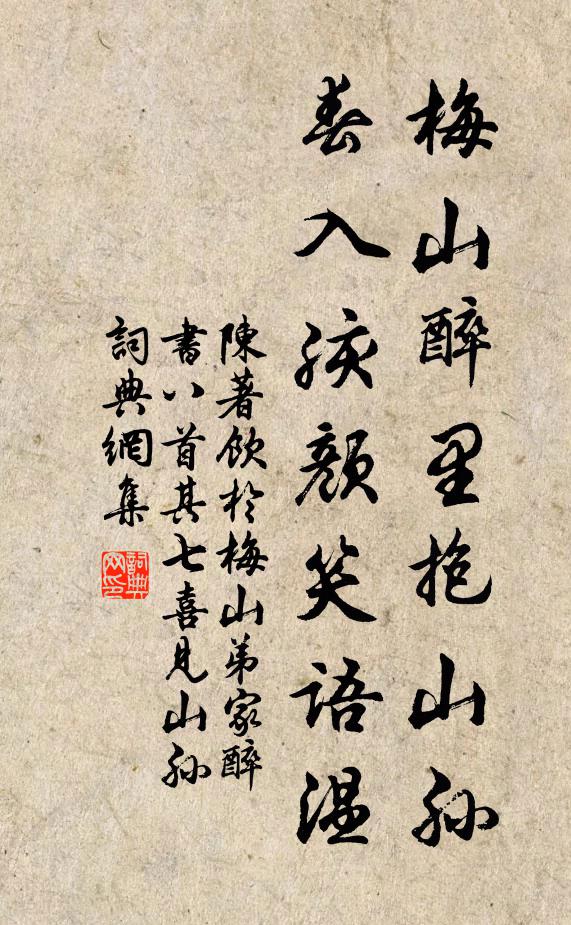 梅山醉里抱山孙
春入孩顏笑語温
陳著飲於梅山弟家醉
書八首其七喜見山孙
詞典網集
詞典
网印